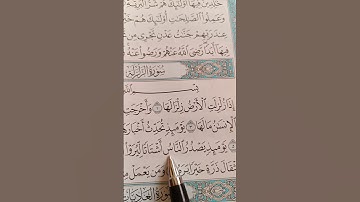 خَٰلِدِينَ فِيهَآ أُو۟لَٰٓئِكَ هُمْ شَرُّ ٱلْبَرِيَّةِ
وَعَمِلُوا۟ ٱلصَّٰلِحَٰتِ أُو۟لَٰٓئِكَ هُمْ
عِندَ رَبِّهِمْ جَنَّٰتُ عَدْنٍ تَجْرِى مِن
فِيهَآ أَبَدًا رَّضِىَ ٱللَّهُ عَنْهُمْ وَرَضُوا۟ عَنْهُ
سُورَةُ الزَّلْزَلَةِ
بِسْمِ ٱللَّهِ
إِذَا زُلْزِلَتِ ٱلْأَرْضُ زِلْزَالَهَا ١ وَأَخْرَجَتِ
ٱلْإِنسَٰنُ مَا لَهَا ٣ يَوْمَئِذٍ تُحَدِّثُ أَخْبَارَهَا
يَوْمَئِذٍ يَصْدُرُ ٱلنَّاسُ أَشْتَاتًا لِّيُرَوْا۟
مِثْقَالَ ذَرَّةٍ خَيْرًا يَرَهُۥ ٧ وَمَن يَعْمَلْ
سُورَةُ العَادِيَاتِ